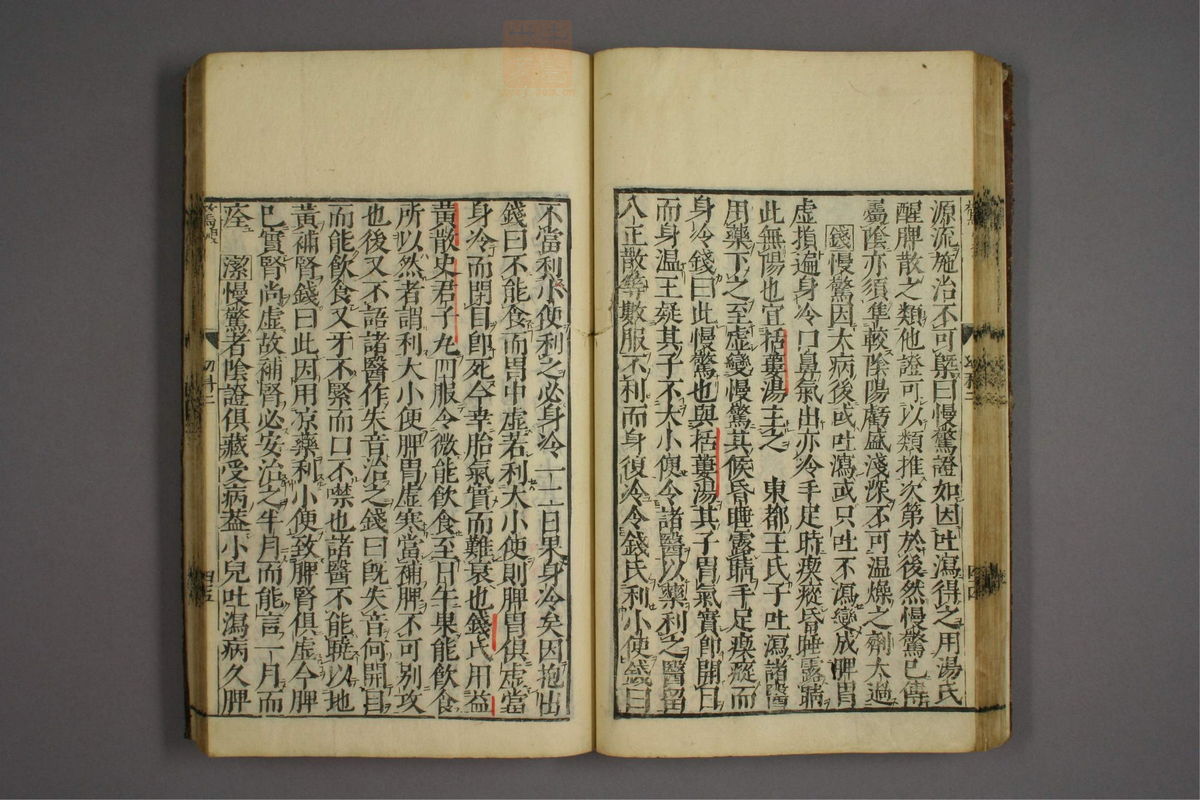 源流施治不可槩曰慢驚證如因吐瀉得之用湯氏
醒脾散之類他證可以類推次第於後然慢驚已傳
屬陰亦須準較陰陽虧盛淺深不可温燥之劑太過
錢慢驚因大病後或吐瀉或只吐不瀉變成脾胃
虛損遍身冷口鼻氣出亦冷手足時瘈瘲昏睡露睛
此無陽也宜栝蔞湯主之　東都王氏子吐瀉諸醫
用藥下之至虛變慢驚其候昏睡露睛手足瘈瘲而
身冷錢曰此慢驚也與栝蔞湯其子胃氣實即開目
而身温王疑其子不大小便令諸醫以藥利之醫留
八正散等數服不利而身復冷令錢氏利小便錢曰
不當利小便利之必身冷一二日果身冷矣因抱出
錢曰不能食而胃中虛若利大小便則脾胃俱虛當
身冷而閉目即死今幸胎氣實而難衰也錢氏用益
黃散史君子丸四服令微能飲食至日午果能飲食
所以然者謂利大小便脾胃虛寒當補脾不可别攻
也後又不語諸醫作失音治之錢曰既失音何開目
而能飲食又牙不緊而口不噤也諸醫不能曉以地
黃補腎錢曰此因用凉藥利小便致脾腎俱虛今脾
已實腎尚虛故補腎必安治之半月而能言一月而
痊　潔慢驚者陰證俱藏受病葢小兒吐瀉病久脾
幼科二